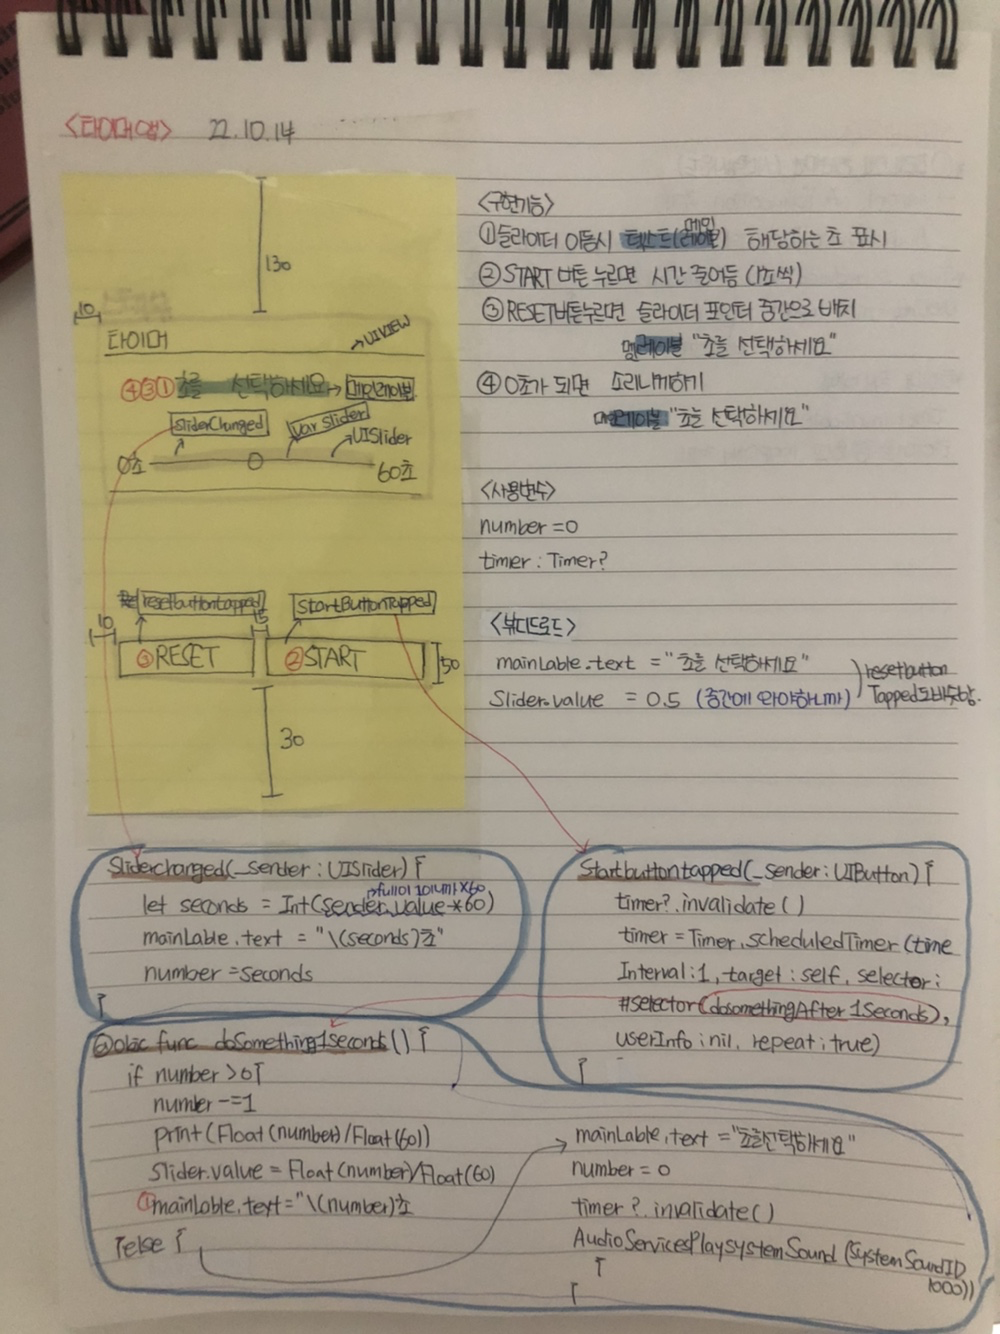 <타이머 앱> 22.10.14
130
10
타이머
→UIVIEW
④③① 초를 선택하세요→메인레이블
sliderChanged
var slider
UISlider
0초
60초
resetbuttontapped
StartButtonTapped
10
15
③RESET
②START
50
30
<구현기능>
①슬라이더 이동시 텍스트(메인레이블) 해당하는 초 표시
②START 버튼 누르면 시간 줄어듬 (1초씩)
③RESET버튼누르면 슬라이더 포인터 중간으로 배치
멘레이블 "초를 선택하세요"
④0초가 되면 소리나게하기
멘레이블 "초를 선택하세요"
<사용변수>
number=0
timer : Timer?
<뷰디드로드>
mainLable.text = "초를 선택하세요"
Slider.value = 0.5 (중간에 와야하니까)
resetbutton
Tapped도비슷함.
Sliderchanged(_sender : UISlider) {
let seconds = Int(sender.value*60)
mainLable.text = "\(seconds)초"
number=seconds
}
Startbuttontapped(_sender : UIButton) {
timer?.invalidate()
timer=Timer.scheduledTimer(time
Interval:1, target:self, selector:
#selector(dosomethingAfter1Seconds),
userInfo:nil, repeat:true)
}
@objc func doSomething1seconds() {
if number>0{
number-=1
print(Float(number)/Float(60))
Slider.value=Float(number)/Float(60)
①mainLable.text="\(number)초
}else {
mainLable.text="초를선택하세요"
number=0
timer?.invalidate()
AudioServicesPlaysystemSound(SystemSoundID
1000))
}
}